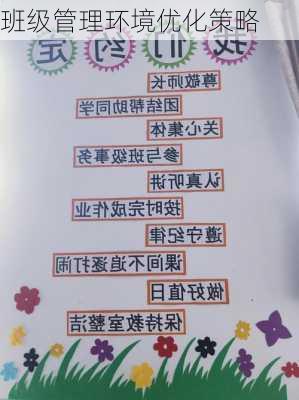 班级管理环境优化策略
我们约定
尊敬师长
团结帮助同学
关心集体
参与班级事务
认真听讲
按时完成作业
遵守纪律
课间不追逐打闹
做好值日
保持教室整洁